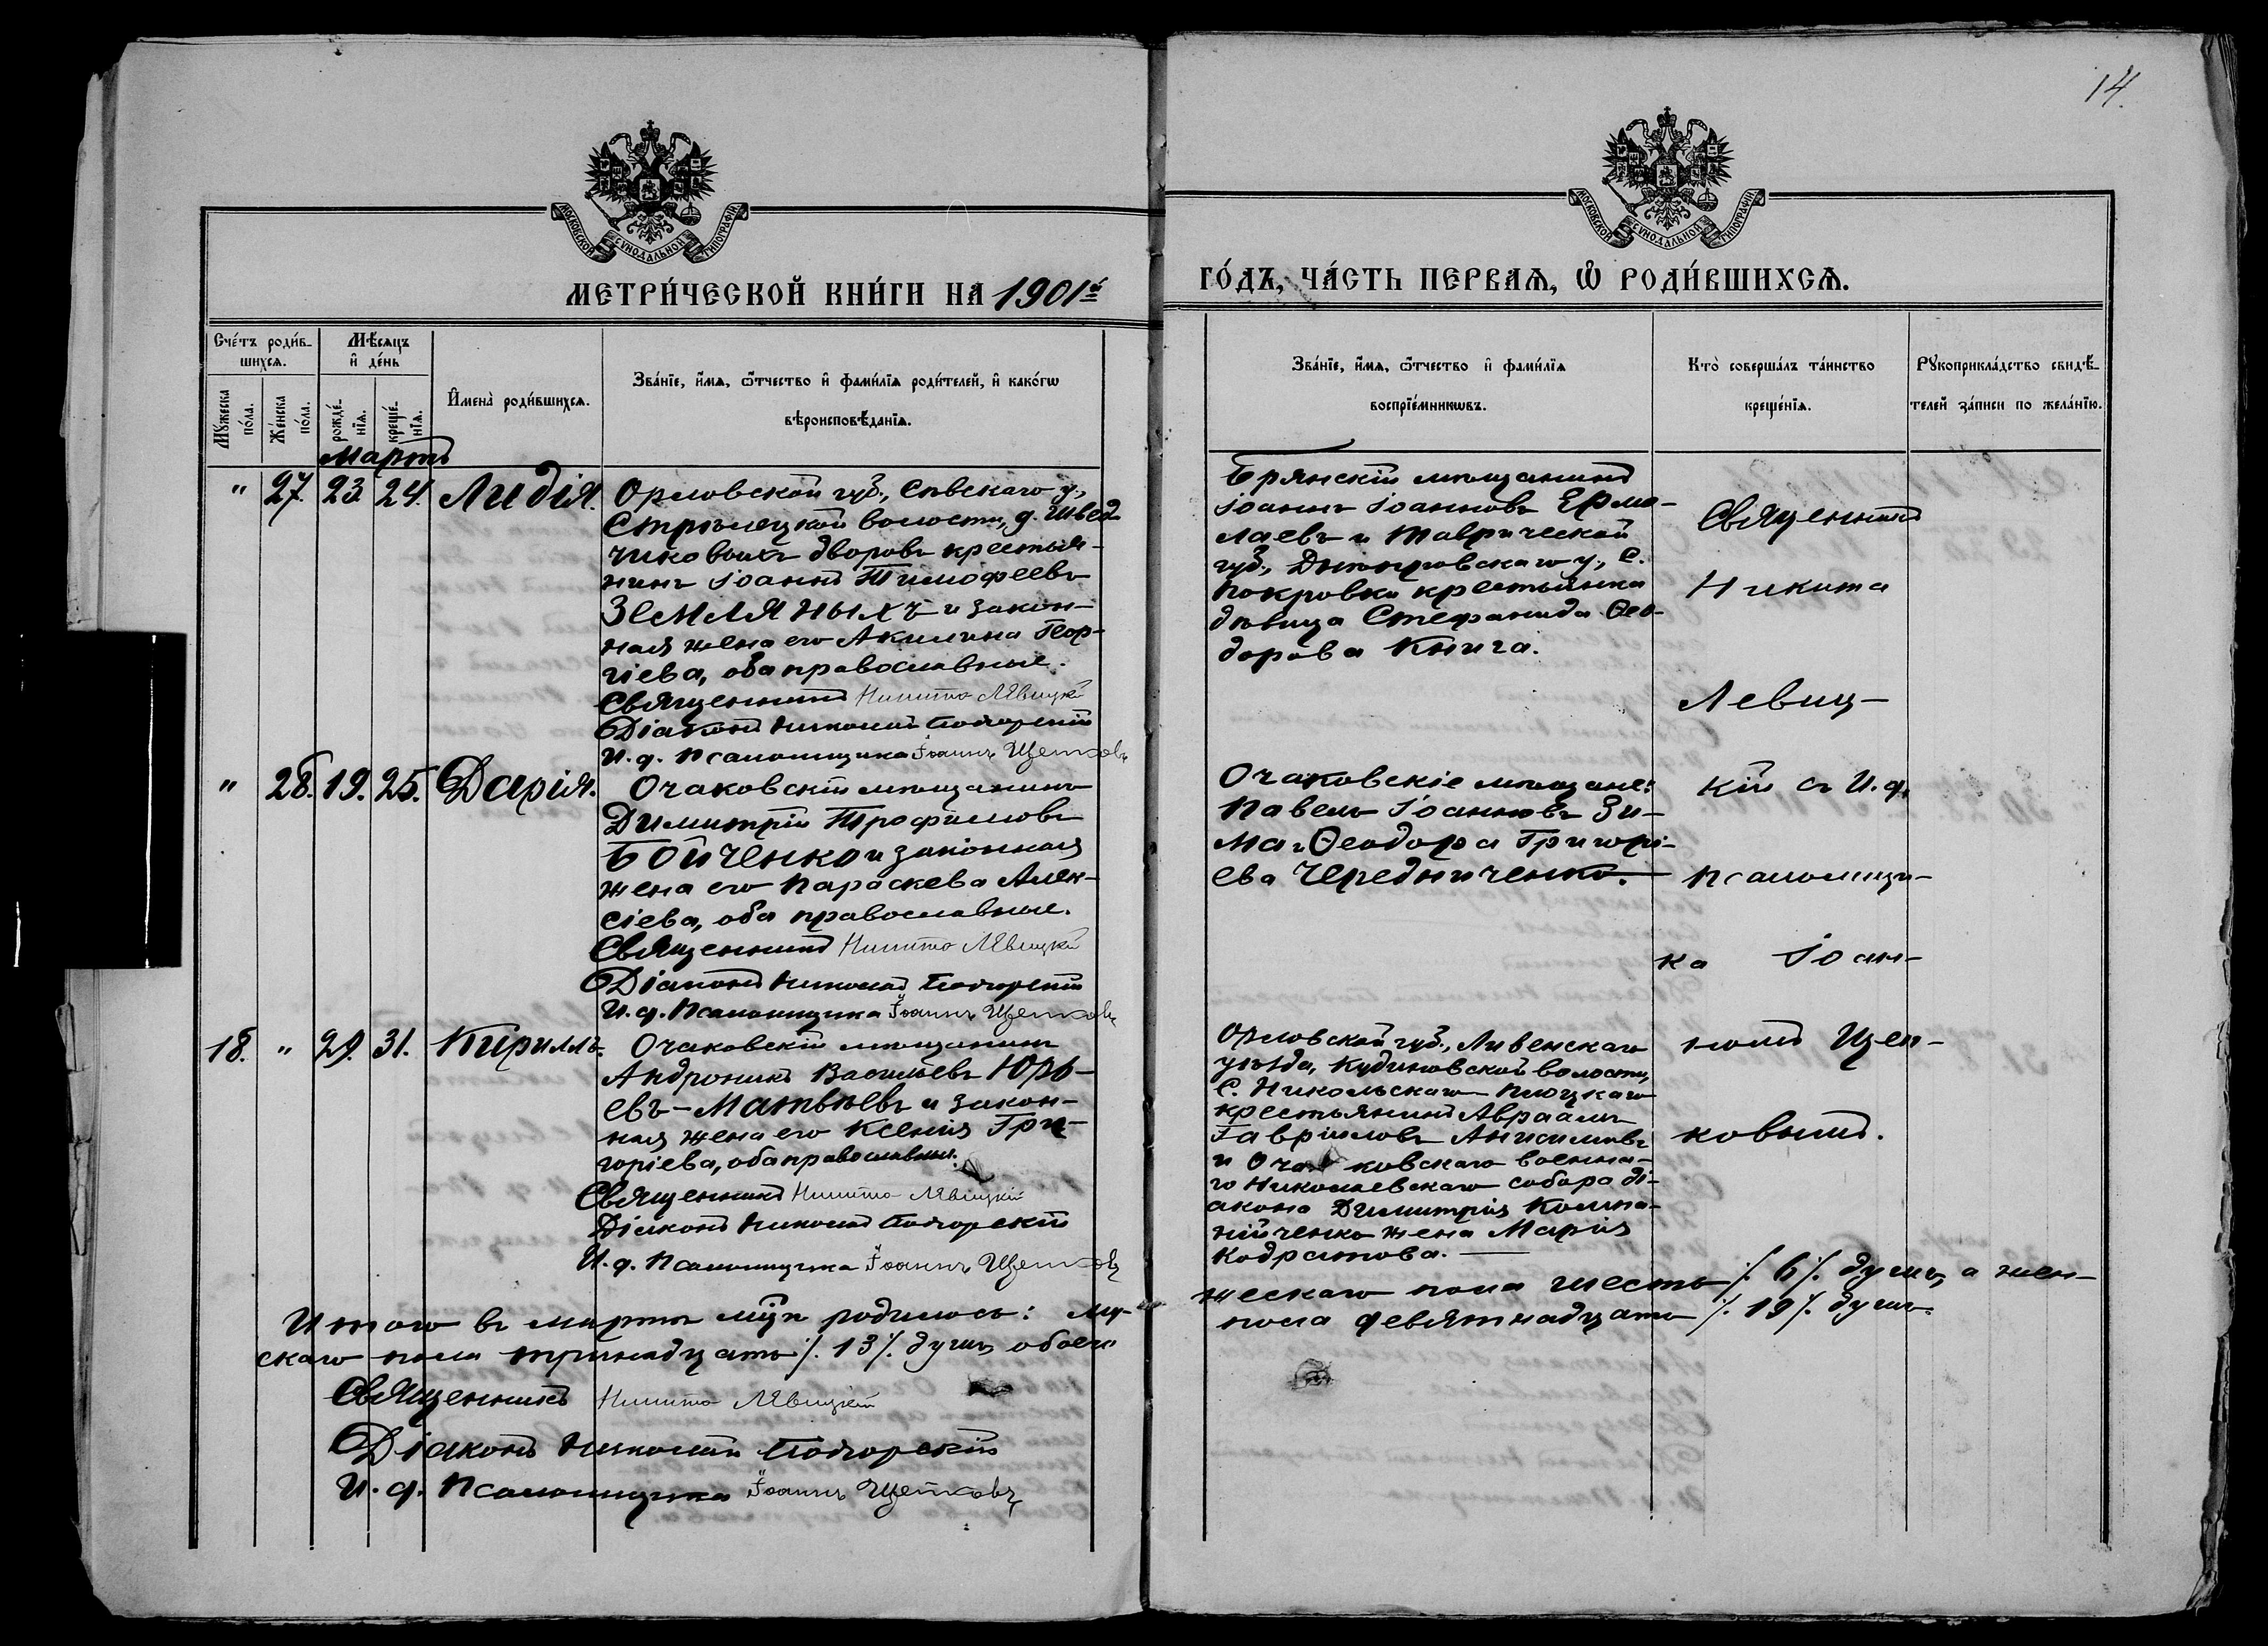 14.
МОСКОВСКОЙ СѴНОДАЛЬНОЙ ТИПОГРАФІИ.
МОСКОВСКОЙ СѴНОДАЛЬНОЙ ТИПОГРАФІИ.
МЕТРИ́ЧЕСКОЙ КНИ́ГИ НА 1901й
ГО́ДЪ, ЧА́СТЬ ПЕРВАѦ, Ѡ҆ РОДИ́ВШИХСѦ.
Сче́тъ роди́в-
шихсѧ.
Мꙋ́жеска
по́ла.
Же́нска
по́ла.
Мѣ́сѧцъ
и҆ де́нь
рожде́-
нїѧ.
креще́-
нїѧ.
И҆мена̀ роди́вшихсѧ.
Зва́нїе, и҆́мѧ, ѻ҆́тчество и҆ фами́лїѧ роди́телей, и҆ како́гѡ
вѣроисповѣ́данїѧ.
Зва́нїе, и҆́мѧ, ѻ҆́тчество и҆ фами́лїѧ
воспрїе́мникѡвъ.
Кто̀ соверша́лъ та́инство
креще́нїѧ.
Рꙋкоприкла́дство свидѣ́-
телей за́писи по жела́нїю.
Мартъ
" 27. 23. 24. Лидія.
Орловской губ., Сѣвскаго у.,
Стрѣлецкой волости, д. Швед-
чиковыхъ дворовъ крестья-
нинъ Іоаннъ Тимофеевъ
Земляныхъ и закон-
ная жена его Акилина Геор-
гіева, оба православные.
Священникъ Никита Левицкій
Діаконъ Николай Подгорскій
И. д. Псаломщика Іоаннъ Щепковъ
Брянскій мѣщанинъ
Іоаннъ Іоанновъ Ермо-
лаевъ и Таврической
губ., Днѣпровскаго у., С.
Покровки крестьянка
дѣвица Стефанида Ѳео-
дорова Книга.
" 28. 19. 25. Дарія.
Очаковскій мѣщанинъ
Димитрій Трофимовъ
Бойченко и законная
жена его Параскева Алек-
сіева, оба православные.
Священникъ Никита Левицкій
Діаконъ Николай Подгорскій
И. д. Псаломщика Іоаннъ Щепковъ
Очаковскіе мѣщане:
Павелъ Іоанновъ Зи-
ма и Ѳеодора Григорі-
ева Чередниченко.
18. " 29. 31. Кириллъ.
Очаковскій мѣщанинъ
Андроникъ Васильевъ Юрь-
евъ-Матвѣевъ и закон-
ная жена его Ксенія Гри-
горіева, оба православные.
Священникъ Никита Левицкій
Діаконъ Николай Подгорскій
И. д. Псаломщика Іоаннъ Щепковъ
Орловской губ., Ливенскаго
уѣзда, Кудиновской волости,
С. Никольскаго
крестьянинъ Авраамъ
Гавріиловъ Анисимовъ
и Очаковскаго военна-
го Николаевскаго собора ді-
акона Димитрія Компа-
нійченко жена Марія
Кодратова.
Священникъ
Никита
Левиц-
кій съ И. д.
псаломщи-
ка Іоан-
номъ Щеп-
ковымъ.
Итого въ мартѣ мцѣ родилось: му-
жескаго пола шесть /. 6 /. душъ, а жен-
скаго пола тринадцать /. 13 /. душъ, обоего
пола девятнадцать /. 19 /. душъ.
Священникъ Никита Левицкій
Діаконъ Николай Подгорскій
И. д. Псаломщика Іоаннъ Щепковъ